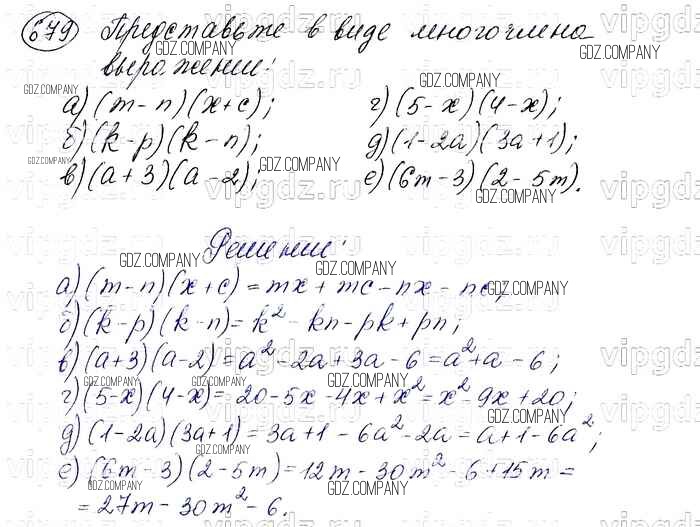 679 Представьте в виде многочлена
выражение:
а) (m - n)(x + c); г) (5 - x)(4 - x);
б) (k - p)(k - n); д) (1 - 2a)(3a + 1);
в) (a + 3)(a - 2); е) (6m - 3)(2 - 5m).
Решение:
а) (m - n)(x + c) = mx + mc - nx - nc;
б) (k - p)(k - n) = k² - kn - pk + pn;
в) (a + 3)(a - 2) = a² - 2a + 3a - 6 = a² + a - 6;
г) (5 - x)(4 - x) = 20 - 5x - 4x + x² = x² - 9x + 20;
д) (1 - 2a)(3a + 1) = 3a + 1 - 6a² - 2a = a + 1 - 6a²;
е) (6m - 3)(2 - 5m) = 12m - 30m² - 6 + 15m =
= 27m - 30m² - 6.